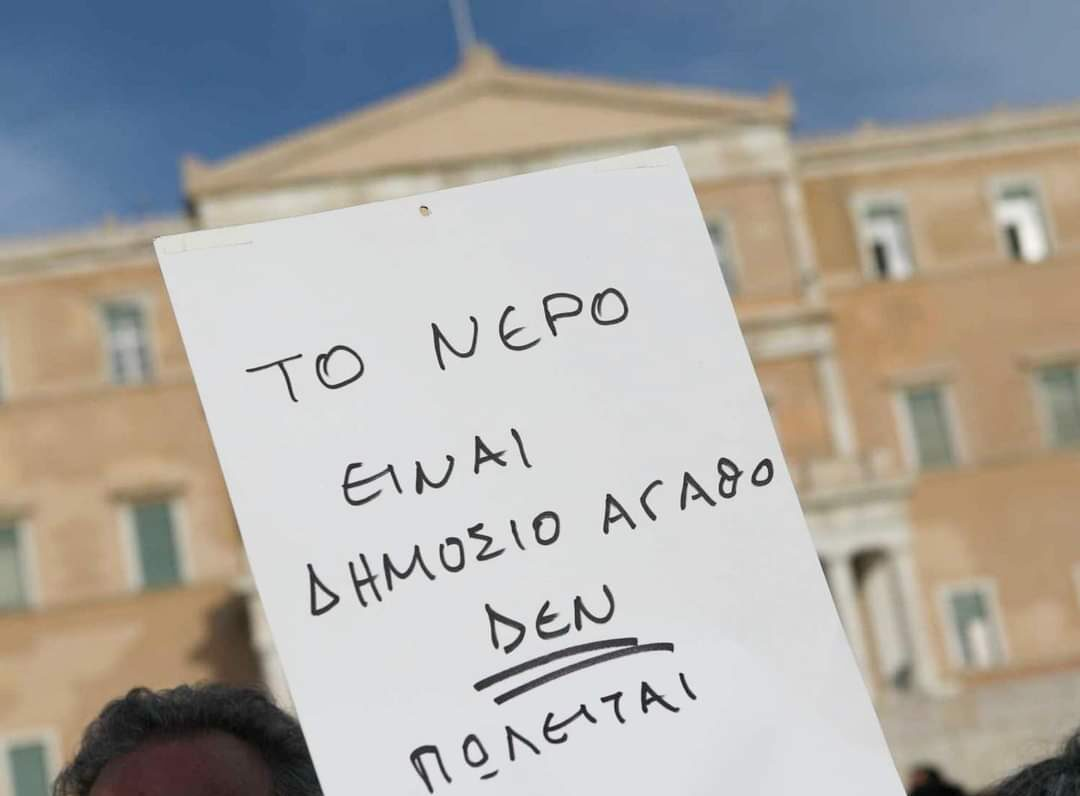 ΤΟ ΝΕΡΟ
ΕΙΝΑΙ
ΔΗΜΟΣΙΟ ΑΓΑΘΟ
ΔΕΝ
ΠΩΛΕΙΤΑΙ